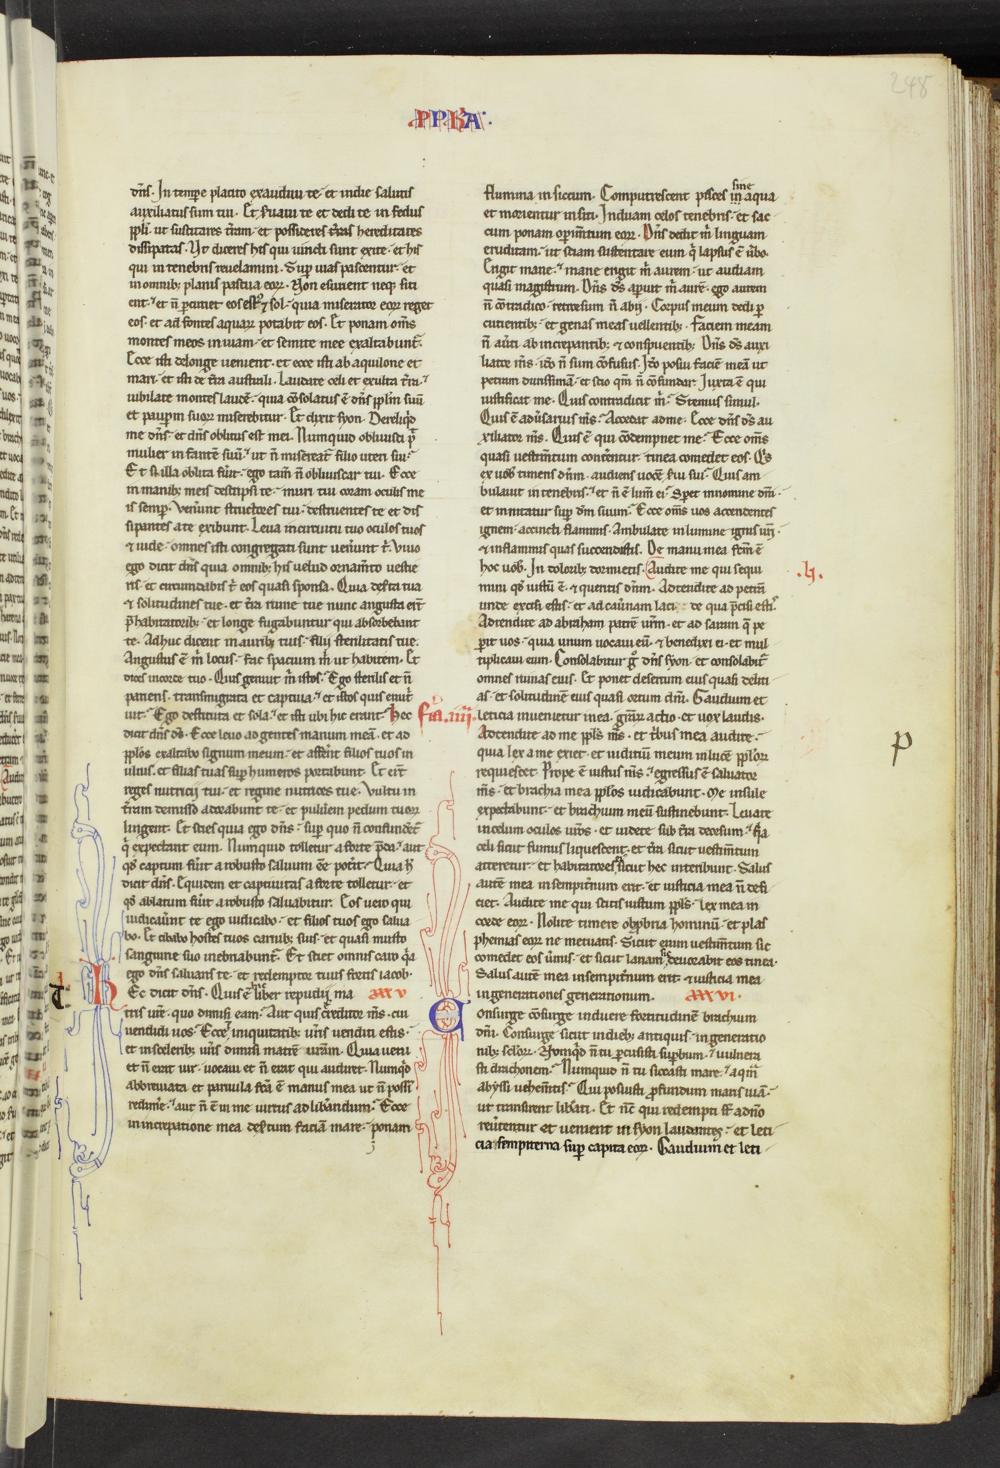 248
PPHA
dn̄s. In tempore placito exaudiui te. et in die salutis
auxiliatus sum tui. Et seruaui te et dedi te in fedus
ppl̄i. ut suscitares tr̄am. et possideres hereditates
dissipatas. Ut diceres his qui uincti sunt exite. et his
qui in tenebris reuelamini. Sup uias pascentur. et
in omnib; planis pascua eoꝝ. Non esurient neq; siti
ent. et n̄ percutiet eos est⁊ sol. quia miserator eoꝝ reget
eos. et ad fontes aquaꝝ potabit eos. Et ponam om̄s
montes meos in uiam. et semite mee exaltabunt᷑.
Ecce isti de longe uenient. et ecce isti ab aquilone et
mari. et isti de t̄ra australi. Laudate celi et exulta t̄ra.
iubilate montes laudē. quia cōsolatus ē dn̄s ppl̄m suū
et paupm̄ suoꝝ miserebitur. Et dixit syon. Dereliq̇d
me dn̄s. et dn̄s oblitus est mei. Numquid obliuisci p̄
mulier infantē suū. ut n̄ misereat᷑ filio uteri sui.
Et si illa oblita fu᷑it. ego tam̄ n̄ obliuiscar tui. Ecce
in manib; meis descripsi te. muri tui coram oculis me
is semp̄. Uener̄unt structores tui. destruentes te et dis
sipantes a te exibunt. Leua in circuitu tuo oculos tuos
⁊ uide. omnes isti congregati sunt uener̄unt t̄. Uiuo
ego dicit dn̄s quia omnib; his uelud ornam̄to uestie
ris. et circundabis t̄ eos quasi sponsa. Quia des̄ta tua
⁊ solitudines tue. et t̄ra ruine tue nunc angusta er̄t
p̄ habitatorib;. et longe fugabuntur qui absorbebant
te. Adhuc dicent in aurib; tuis. filii sterilitatis tue.
Angustus ē m̄ locus. fac spacium m̄ ut habitem. Et
dices in corde tuo. Quis genuit m̄ istos. Ego sterilis et n̄
pariens. transmigrata et captiua. et istos quis enut᷑
uit. Ego destituta et sola. et isti ubi hic erant. Hec
dicit dn̄s ds̄. Ecce leuo ad gentes manum meā. et ad
pplōs exaltabo signum meum. et affer̄nt filios tuos in
ulnis. et filias tuas sup humeros portabunt. Et er̄t
reges nutricii tui. et regine nutrices tue. Vultu in
tr̄am demisso adorabunt te. et puluerem pedum tuoꝝ
lingent. Et scies quia ego dn̄s. sup quo n̄ confundent᷑
q̇ expectant eum. Numquid tolletur a forte p̄da. aut
qd̄ captum fu᷑it a robusto saluum ēe pot᷑it. Quia h̄
dicit dn̄s. Equidem et captiuitas a forte tolletur. et
qd̄ ablatum fu᷑it a robusto saluabitur. Eos uero qui
iudicauer̄nt te ego iudicabo. et filios tuos ego salua
bo. Et cibabo hostes tuos carnib; suis. et quasi musto
sanguine suo inebriabunt᷑. Et sciet omnis caro q̇a
ego dn̄s saluans te. et redemptor tuus fortis iacob.
Hec dicit dn̄s. Quis ē h̊ liber repudii ma
tris ur̄e. quo dimisi eam. Aut quis creditor m̄s. cui
uendidi uos. Ecce iniquitatib; ur̄is uenditi estis.
et in scelerib; ur̄is dimisi matrē ur̄am. Quia ueni
et n̄ erat uir. uocaui et n̄ erat qui audiret. Numq̇d
abbreuiata et paruula fc̄a ē manus mea ut n̄ possī
redim̄e. aut n̄ ē in me uirtus ad liberandum. Ecce
in increpatione mea des̄tum faciā mare. ponam
fia. iiii.
flumina in siccum. Computrescent pisces sine in aqua
et morientur in siti. Induam celos tenebris. et sac
cum ponam operim̄tum eoꝝ. Dn̄s dedit m̄ linguam
eruditam. ut sciam sustentare eum q̇ lapsus ē u᷑bo.
Erigit mane. mane erigit m̄ aurem. ut audiam
quasi magistrum. Dn̄s ds̄ aperuit m̄ aurē. ego autem
n̄ cōtradico. retrorsum n̄ abii. Corpus meum dedi p̄
cutientib;. et genas meas uellentib;. Faciem meam
n̄ au᷑ti ab increpantib; ⁊ conspuentib;. Dn̄s ds̄ auxi
liator m̄s. ido n̄ sum cōfusus. Ido posui faciē meā ut
petram durissimā. et scio qm̄ n̄ cōfundar. Iuxta ē qui
iustificat me. Quis contradicit m̄. Stemus simul.
Quis ē adu᷑sarius m̄s. Accedat ad me. Ecce dn̄s ds̄ au
xiliator m̄s. Quis ē qui cōdempnet me. Ecce om̄s
quasi uestim̄tum conterentur. tinea comedet eos. Qs̄
ex uob̄ timens dn̄m. audiens uocē s̄ui sui. Quis am
bulauit in tenebris. et n̄ ē lum̄ ei. Speret in nomine dn̄i.
et innitatur sup dm̄ suum. Ecce om̄s uos accendentes
ignem. accincti flammis. Ambulate in lumine ignis ur̄i
⁊ in flammis quas succendistis. De manu mea fc̄m ē
hoc uob̄. In dolorib; dormietis. Audite me qui sequi
mini qd̄ iustū ē. ⁊ queritis dn̄m. Adtendite ad petrā
unde excisi estis. et ad cauernam laci de qua p̄cisi estis.
Adtendite ad abraham patrē ur̄m. et ad saram q̄ pe
perit uos. quia unum uocaui eū. ⁊ benedixi ei. et mul
tiplicaui eum. Consolabitur g̊ dn̄s syon. et consolabit᷑
omnes ruinas eius. Et ponet desertum eius quasi delici
as. et solitudinē eius quasi ortum dn̄i. Gaudium et
leticia inuenietur in ea. gr̄aꝝ actio. et uox laudis.
Adtendite ad me ppl̄s m̄s. et tribus mea audite.
quia lex a me exiet. et iudiciū meum in lucē pploꝝ
requiescet. Prope ē iustus m̄s. egressus ē saluator
m̄s. et brachia mea pplōs iudicabunt. Me insule
expectabunt. et brachium meū sustinebunt. Leuate
in celum oculos ur̄os. et uidete sub t̄ra deorsum. q̇a
celi sicut fumus liquescent. et t̄ra sicut uestim̄tum
atteretur. et habitatores sicut hec interibunt. Salus
autē mea in sempit᷑num erit. et iusticia mea n̄ defi
ciet. Audite me qui scitis iustum ppl̄s. lex mea in
corde eoꝝ. Nolite timere obprobria hominū. et blas
phemias eoꝝ ne metuatis. Sicut enim uestim̄tum sic
comedet eos u᷑mis. et sicut lanam sic deuorabit eos tinea.
Salus autē mea in sempit᷑num erit. ⁊ iusticia mea
in generationes generationum.
Consurge cōsurge induere fortitudinē brachium
dn̄i. Consurge sicut in dieb; antiquis. in generatio
nib; sc̄loꝝ. Numq̇d n̄ tu p̄cussisti supbum. uulnera
sti drachonem. Numquid n̄ tu siccasti mare. aqm̄
abyssi uehem̄tis. Qui posuisti profundum maris uiā.
ut transirent liberati. Et n̄c qui redempti s̄t a dn̄o
reu᷑tentur et uenient in syon laudantes. et leti
cia sempiterna sup capita eoꝝ. Gaudium et leti
.h.
p